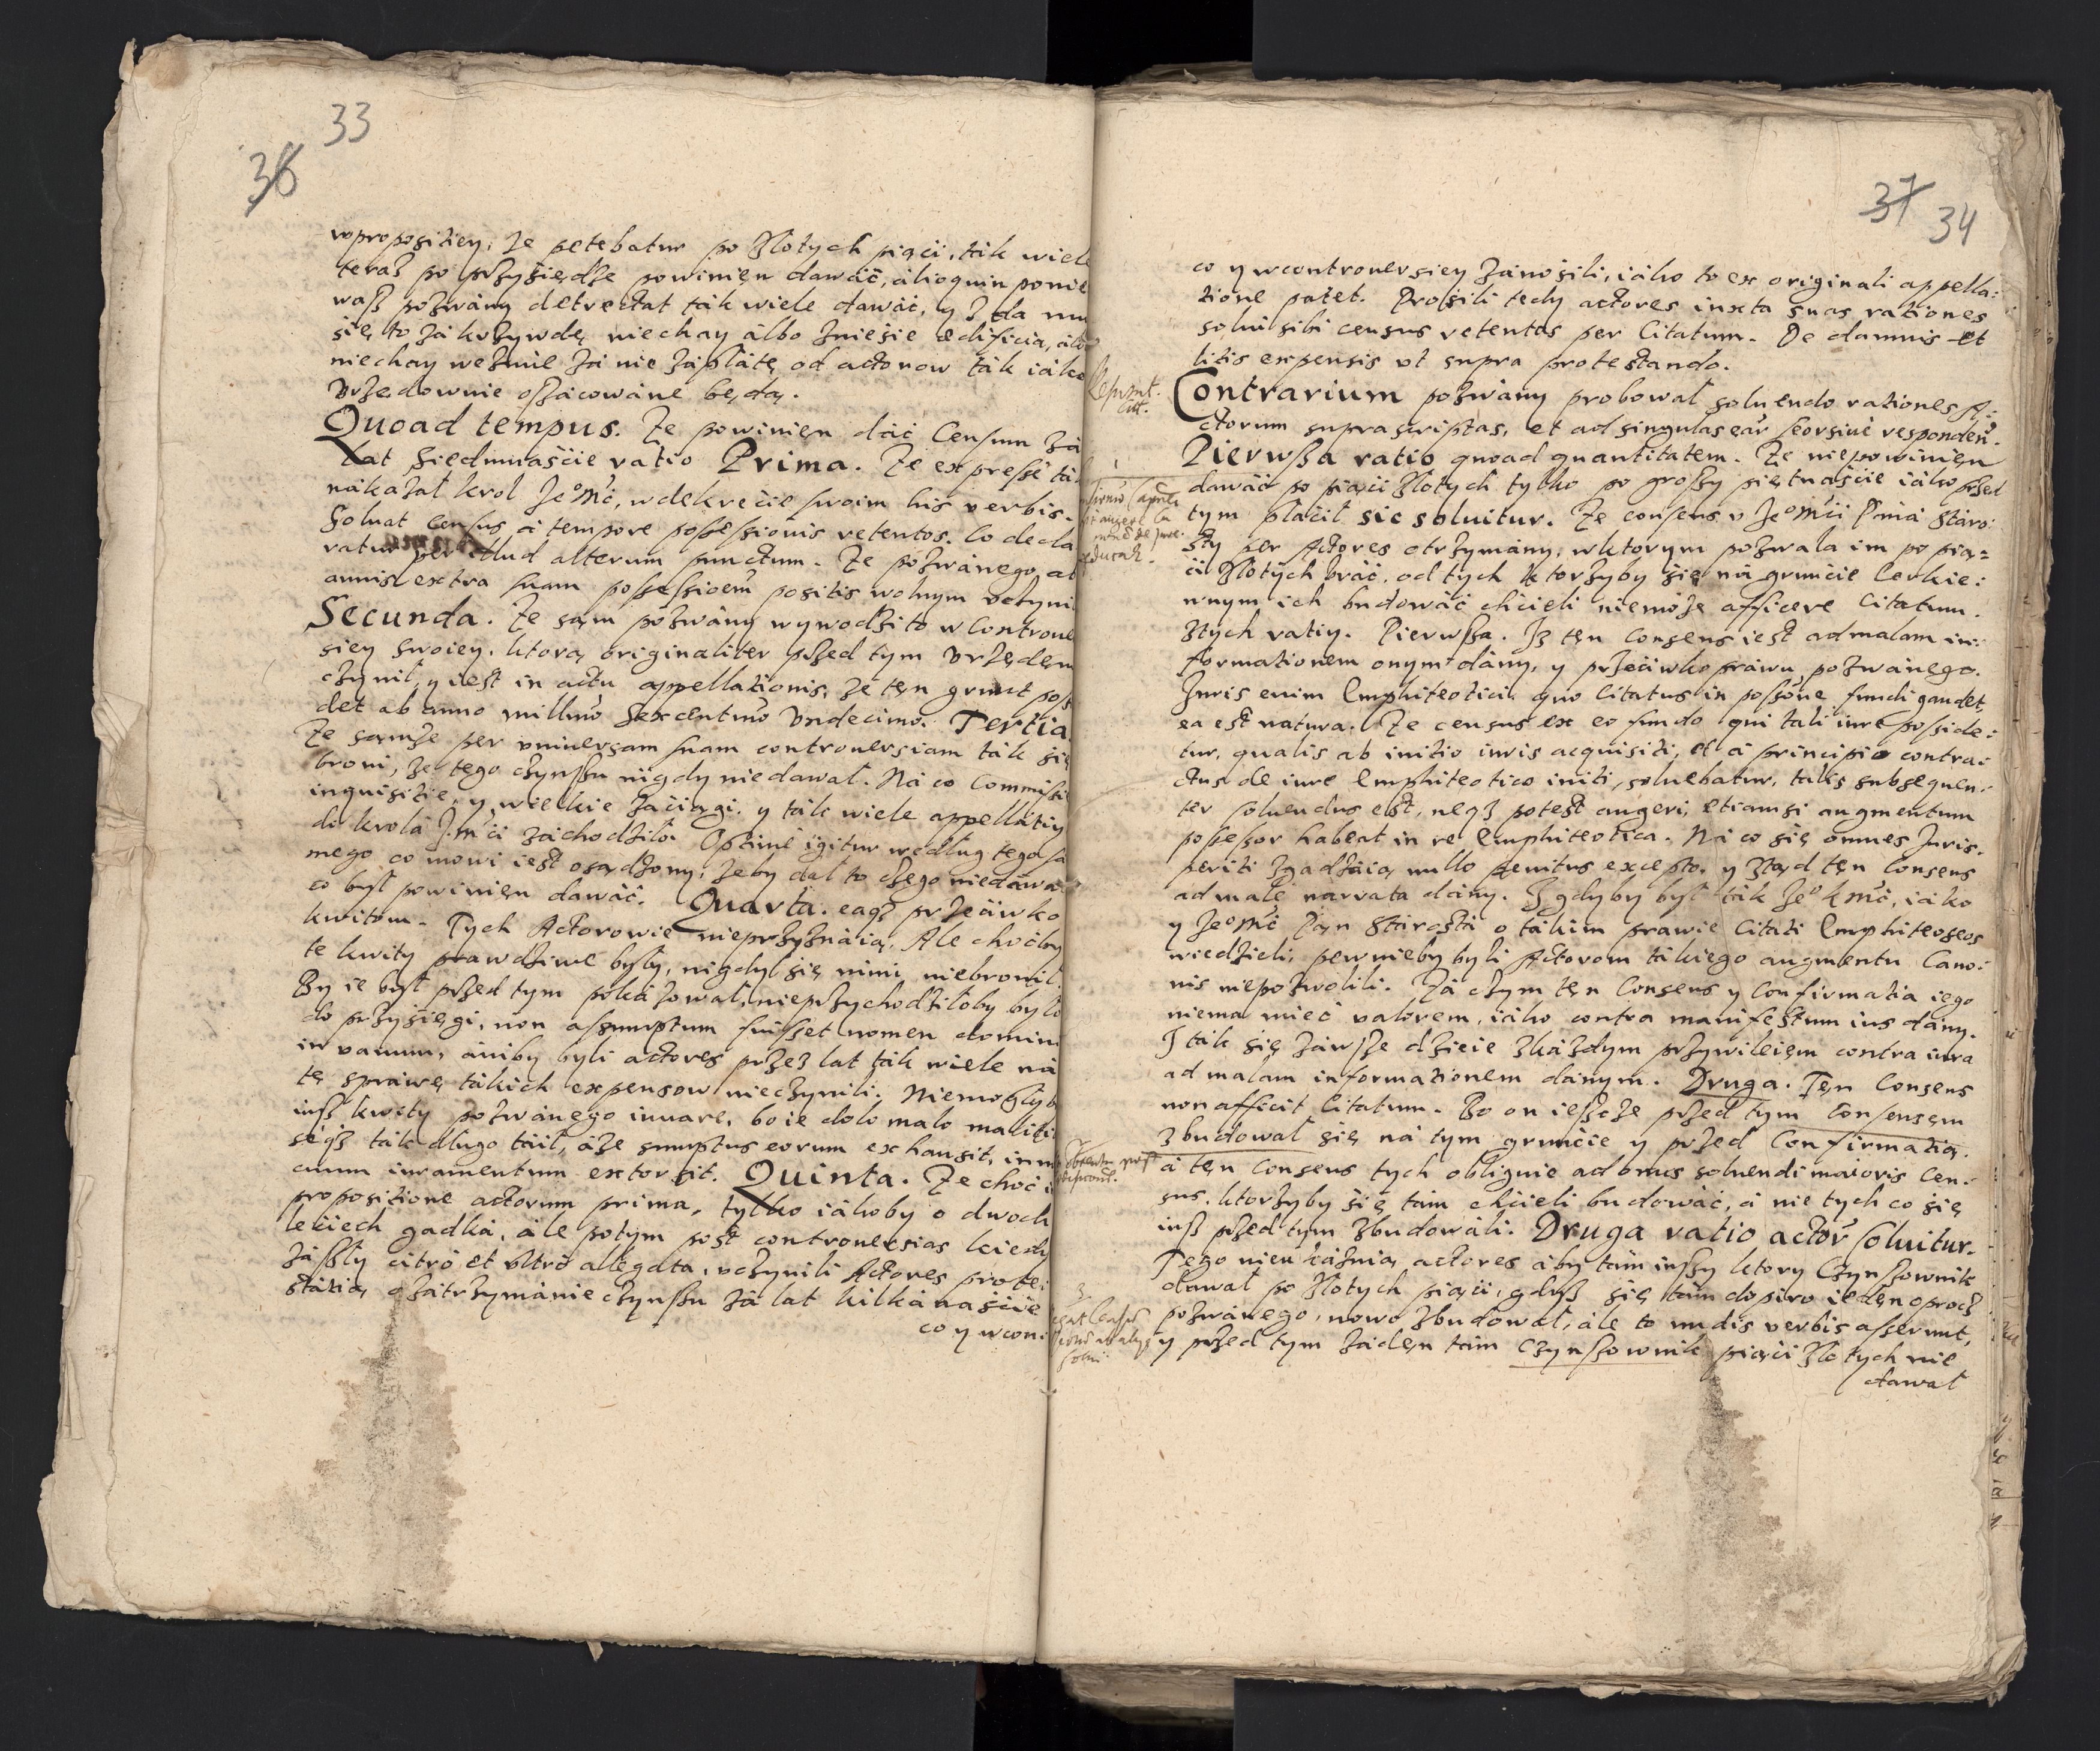 33
36
wpropositiey, że petebatur po Złotych piąci, ták wiele
teraż po przysiędze powinien dawáć, álioquin ponie
waß pozwány detrectat ták wiele dawáć, y zda mu
się to zá krzywdę niechay álbo znieśie ædificia, álbo
niechay weźmie zá nie zápłátę od actorow ták iáko
vrzędownie oszácowáne będą.
Quoad tempus. Że powinien dáć Censum zá
Lat siedmnaście ratio Prima. Że expresse ták
nákazał krol Jeomć, w dekrecie swoim his verbis.
Soluat census á tempore possessionis retentos. Co decla
ratur per illud alterum punctum. Że pozwánego ab
annis extra suam possessioem positis wolnym vczynił
Secunda. Że sąm pozwány wywodzi to w Controuer
siey swoiey, ktorą originaliter przed tym vrzędem
czynił, y iest in actu appellationis, że tęn grunt possi
det ab anno millmo Sexcentmo Vndecimo. Tertia
Że sąmże per vniuersam suam controuersiam ták się
broni, że tego czynßu nigdy niedawał. Ná co Commissie
inquisitie, y wielkie záciągi, y ták wiele appellátiy
do krolá J. mći záchodziło. Optime igitur według tego sá
mego co mowi iest osądzony, żeby dał to czego niedawał
co był powinien dawáć. Quarta. eaqz przećiwko
kwitom. Tych Actorowie nieprzyznáią. Ale choćby
te kwity prawdziwe były, nigdyż się nimi niebronił.
By ie był przed tym pokázował, nieprzychodziłoby było
do przysięgi, non assumptum fuisset nomen domini
in vanum, ániby byli actores przez lat ták wiele ná
tę spráwę tákich expensow nieczynili. Niemogłyby
inß kwity pozwánego iuuare, bo ie dolo malo maliti
seqz ták długo táił, áże sumptus eorum exhausit, inui
cuum iuramentum extorsit. Quinta. Że choć in
propositione actorum prima, tylko iákoby o dwoch
leciech gadká, ále potym post controuersias kiedy
záßły citro et vltro allegata, vczynili Actores prote:
státią o zátrzymánie czynßu zá lat kilkánaśćie
co y wcon:
37 34
co y wcontrouersiey zánosili, iáko to ex originali appella:
tione patet. Prosili tedy actores iuxta suas rationes
solui sibi census retentos per Citatum. De damnis et
litis expensis vt supra protestando.
Contrarium pozwány probował soluendo rationes A:
ctorum suprascriptas, et ad singulas ear seorsiue responden.
Pierwßa ratio quoad quantitatem. Że niepowinien
dawáć po piąci Złotych tylko po großy piętnaście iáko przed
tym płácił sic soluitur. Że consens v Jeomći Páná Stáro:
sty per Actores otrzymány, w ktorym pozwala im po pią=
ci Złotych bráć, od tych ktorzyby się ná grunćie Cerkie:
wnym ich budowáć chcieli niemoże afficere Citatum.
Ztych ratiy. Pierwßa. Iż tęn Consens iest ad malam in:
formationem onym dány, y przećiwko práwu pozwánego.
Juris enim Emphiteotici, quo Citatus in possone fundi gaudet,
ea est natura. Że census ex eo fundo qui tali iure posside:
tur, qualis ab initio iuris acquisiti, et á principio contra:
ctus de iure Emphiteotico initi, soluebatur, talis subsequen:
ter soluendus est, neqz potest augeri, etiamsi augmentum
possessor habeat in re Emphiteotica. Ná co się omnes Juris
periti zgadzáią nullo penitus excepto, y ztąd tęn Consens
ad male narrata dány. Y gdyby był ták Jeo K mć, iáko
y Jeomć Pan Stárostá o tákim prawie Citati Emphiteoseos
wiedzieli, pewnieby byli Actorom tákiego augmentu Cano:
nis niepozwolili. Zá czym tęn Consens y Confirmatia iego
niema mieć valorem, iáko contra manifestum ius dány.
J ták się záwsze dzieie zkáżdym przywileiem contra iura
ad malam informationem dánym. Druga. Tęn Consens
non afficit Citatum. Bo on ießcże przed tym Consensem
zbudował się ná tym gruncie y przed Confirmatią.
á tęn Consens tych obliguie ad onus soluendi maioris Cen:
sus, ktorzyby się tám chcieli budowáć, á nie tych co się
inß przed tym zbudowáli. Druga ratio actor soluitur.
Tego nieukáżnią actores áby tám inßy ktory Czynßownik
dawał po Złotych piąci, gdyß się tám dopiro ieden oprocz
pozwánego, nowo zbudował, ále to nudis verbis asserunt,
y przed tym żáden tám Czynßownik piąci Złotych nie
dawał